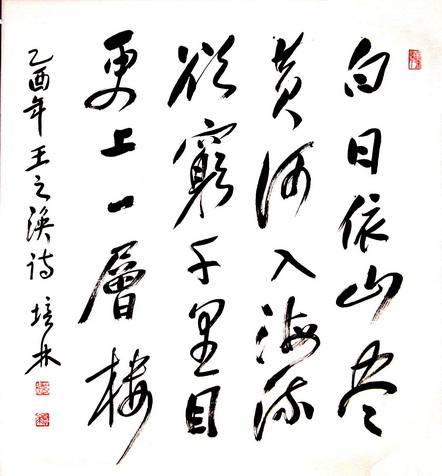 白日依山尽
黄河入海流
欲窮千里目
更上一層楼
乙酉年王之涣诗 培林